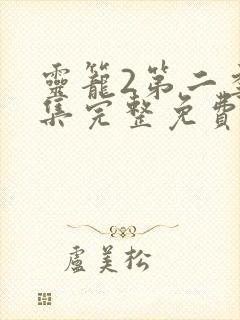 靈籠2第二季
集完整免費
盧美松